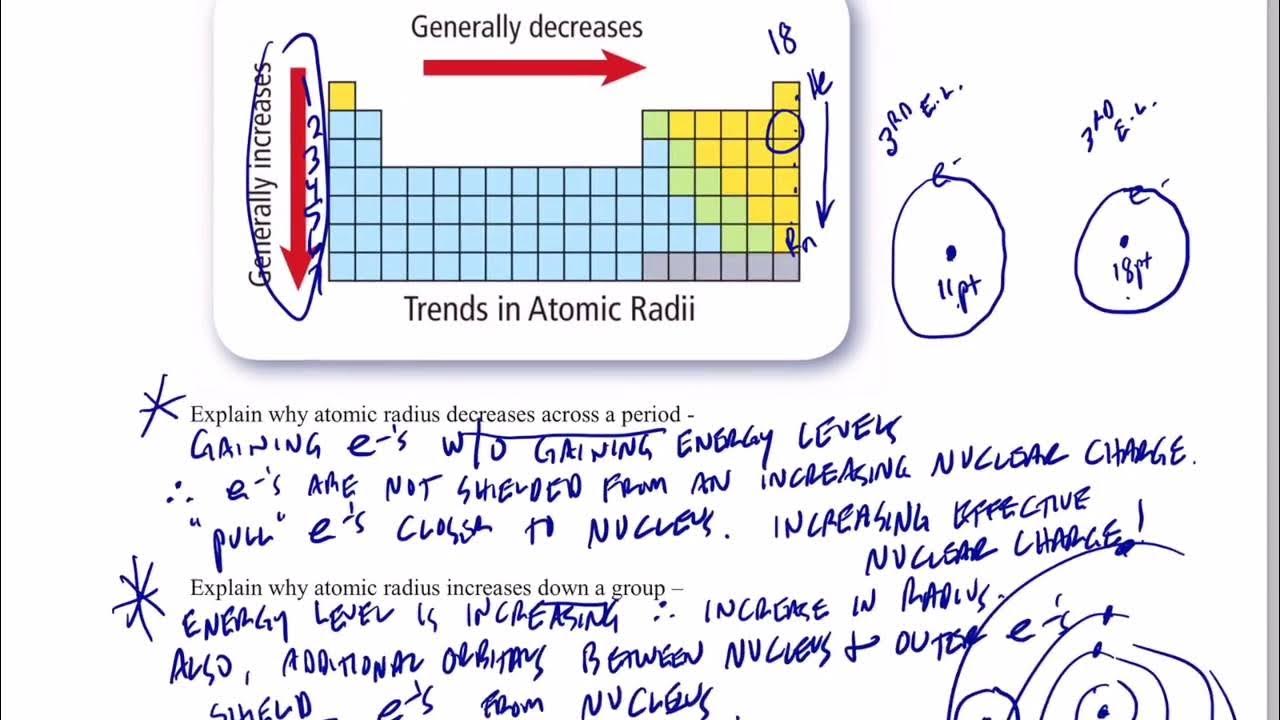 Generally decreases
18
Generally increases
1
2
3
4
5
6
7
He
Rn
Trends in Atomic Radii
3RD E.L.
e-
11pt
3RD E.L.
e-
18pt
Explain why atomic radius decreases across a period -
GAINING e-'s W/O GAINING ENERGY LEVELS
∴ e-'s ARE NOT SHIELDED FROM AN INCREASING NUCLEAR CHARGE.
"PULL" e-'s CLOSER TO NUCLEUS. INCREASING EFFECTIVE
NUCLEAR CHARGE!
Explain why atomic radius increases down a group –
ENERGY LEVEL IS INCREASING ∴ INCREASE IN RADIUS.
ALSO, ADDITIONAL ORBITALS BETWEEN NUCLEUS & OUTER e-'s
SHIELD e-'s FROM NUCLEUS.